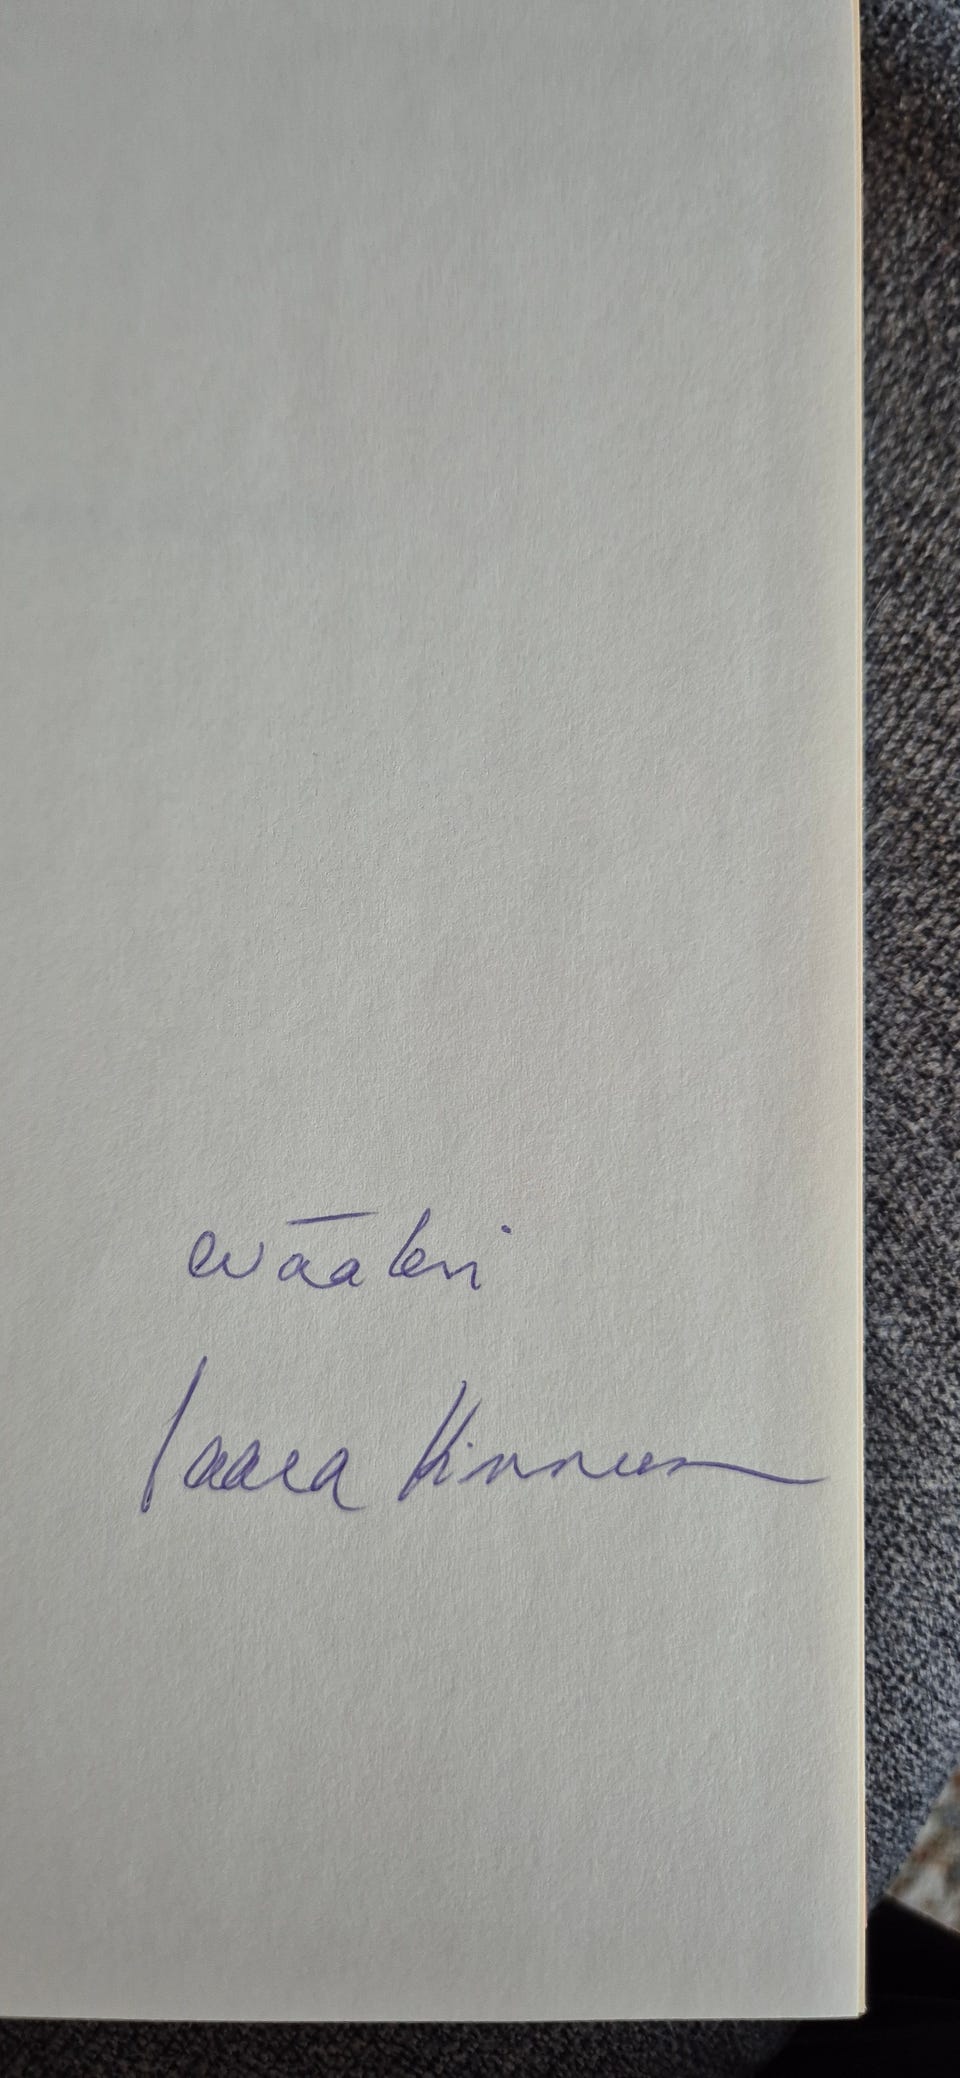 eväälesi
Saara Kinnunen